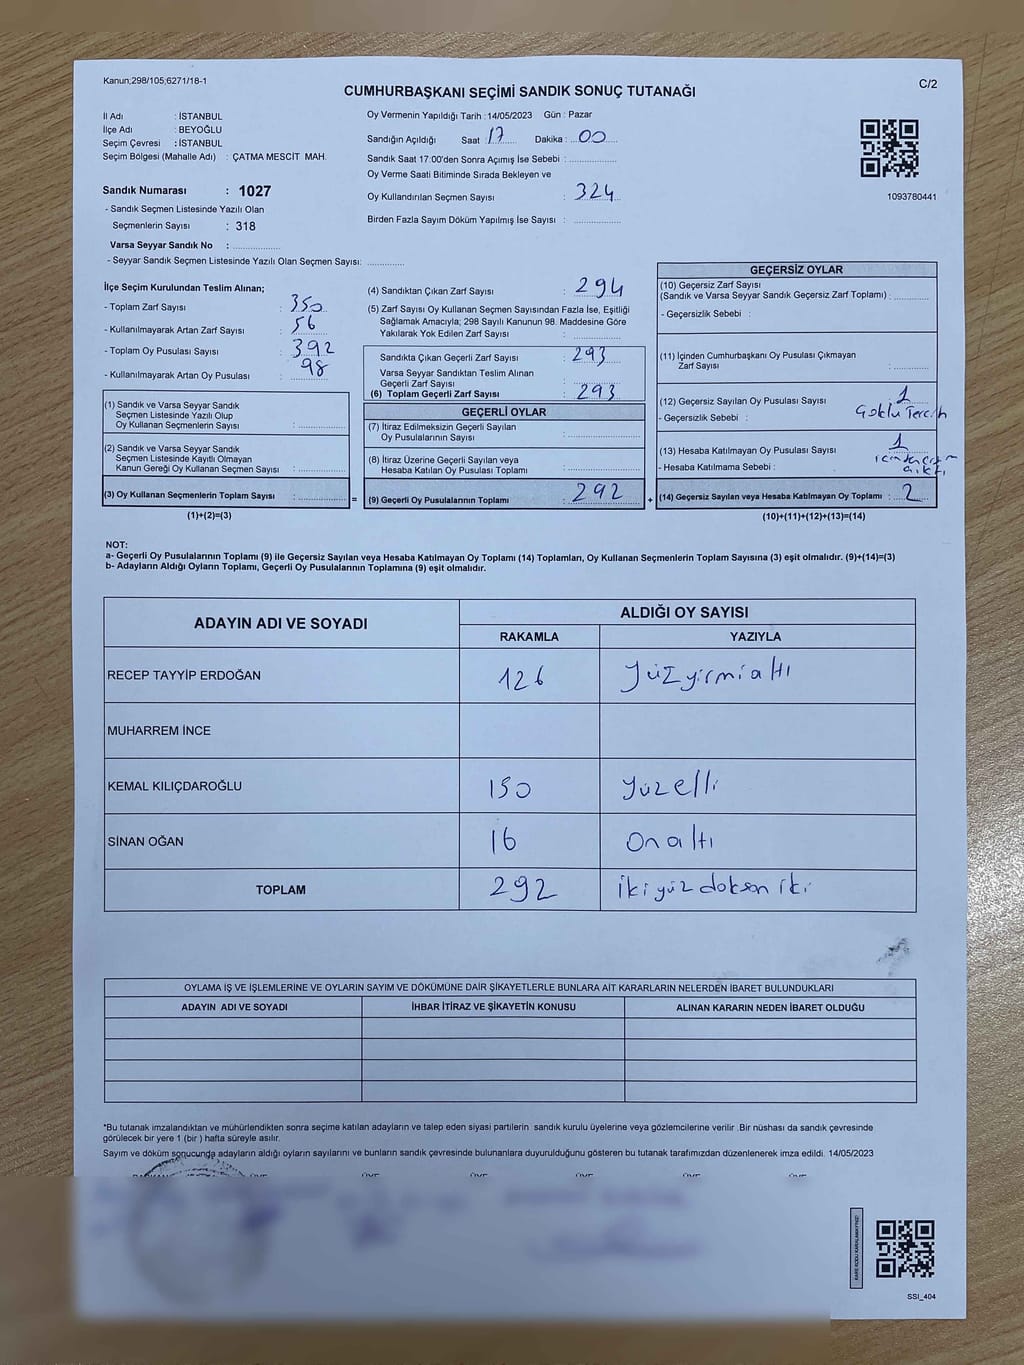 Kanun;298/105;6271/18-1
C/2
CUMHURBAŞKANI SEÇİMİ SANDIK SONUÇ TUTANAĞI
İl Adı : İSTANBUL
İlçe Adı : BEYOĞLU
Seçim Çevresi : İSTANBUL
Seçim Bölgesi (Mahalle Adı) : ÇATMA MESCİT MAH.
Sandık Numarası : 1027
- Sandık Seçmen Listesinde Yazılı Olan
Seçmenlerin Sayısı : 318
Varsa Seyyar Sandık No :
- Seyyar Sandık Seçmen Listesinde Yazılı Olan Seçmen Sayısı:
Oy Vermenin Yapıldığı Tarih :14/05/2023 Gün : Pazar
Sandığın Açıldığı Saat 17 Dakika : 00
Sandık Saat 17:00'den Sonra Açımış İse Sebebi :
Oy Verme Saati Bitiminde Sırada Bekleyen ve
Oy Kullandırılan Seçmen Sayısı : 324
Birden Fazla Sayım Döküm Yapılmış İse Sayısı :
1093780441
İlçe Seçim Kurulundan Teslim Alınan;
- Toplam Zarf Sayısı : 350
- Kullanılmayarak Artan Zarf Sayısı : 56
- Toplam Oy Pusulası Sayısı : 392
- Kullanılmayarak Artan Oy Pusulası : 98
(1) Sandık ve Varsa Seyyar Sandık
Seçmen Listesinde Yazılı Olup
Oy Kullanan Seçmenlerin Sayısı :
(2) Sandık ve Varsa Seyyar Sandık
Seçmen Listesinde Kayıtlı Olmayan
Kanun Gereği Oy Kullanan Seçmen Sayısı :
(3) Oy Kullanan Seçmenlerin Toplam Sayısı : =
(1)+(2)=(3)
(4) Sandıktan Çıkan Zarf Sayısı : 294
(5) Zarf Sayısı Oy Kullanan Seçmen Sayısından Fazla İse, Eşitliği
Sağlamak Amacıyla; 298 Sayılı Kanunun 98. Maddesine Göre
Yakılarak Yok Edilen Zarf Sayısı :
Sandıkta Çıkan Geçerli Zarf Sayısı : 293
Varsa Seyyar Sandıktan Teslim Alınan
Geçerli Zarf Sayısı :
(6) Toplam Geçerli Zarf Sayısı : 293
GEÇERLİ OYLAR
(7) İtiraz Edilmeksizin Geçerli Sayılan
Oy Pusulalarının Sayısı :
(8) İtiraz Üzerine Geçerli Sayılan veya
Hesaba Katılan Oy Pusulası Toplamı :
(9) Geçerli Oy Pusulalarının Toplamı : 292 +
GEÇERSİZ OYLAR
(10) Geçersiz Zarf Sayısı
(Sandık ve Varsa Seyyar Sandık Geçersiz Zarf Toplamı) :
- Geçersizlik Sebebi :
(11) İçinden Cumhurbaşkanı Oy Pusulası Çıkmayan
Zarf Sayısı :
(12) Geçersiz Sayılan Oy Pusulası Sayısı : 1
- Geçersizlik Sebebi : Çoklu Tercih
(13) Hesaba Katılmayan Oy Pusulası Sayısı : 1
- Hesaba Katılmama Sebebi :
(14) Geçersiz Sayılan veya Hesaba Katılmayan Oy Toplamı : 2
(10)+(11)+(12)+(13)=(14)
NOT:
a- Geçerli Oy Pusulalarının Toplamı (9) ile Geçersiz Sayılan veya Hesaba Katılmayan Oy Toplamı (14) Toplamları, Oy Kullanan Seçmenlerin Toplam Sayısına (3) eşit olmalıdır. (9)+(14)=(3)
b- Adayların Aldığı Oyların Toplamı, Geçerli Oy Pusulalarının Toplamına (9) eşit olmalıdır.
ADAYIN ADI VE SOYADI
ALDIĞI OY SAYISI
RAKAMLA YAZIYLA
RECEP TAYYİP ERDOĞAN 126 Yüzyirmialtı
MUHARREM İNCE
KEMAL KILIÇDAROĞLU 150 Yüzelli
SİNAN OĞAN 16 Onaltı
TOPLAM 292 İkiyüzdoksaniki
OYLAMA İŞ VE İŞLEMLERİNE VE OYLARIN SAYIM VE DÖKÜMÜNE DAİR ŞİKAYETLERLE BUNLARA AİT KARARLARIN NELERDEN İBARET BULUNDUKLARI
ADAYIN ADI VE SOYADI İHBAR İTİRAZ VE ŞİKAYETİN KONUSU ALINAN KARARIN NEDEN İBARET OLDUĞU
*Bu tutanak imzalandıktan ve mühürlendikten sonra seçime katılan adayların ve talep eden siyasi partilerin sandık kurulu üyelerine veya gözlemcilerine verilir .Bir nüshası da sandık çevresinde
görülecek bir yere 1 (bir ) hafta süreyle asılır.
Sayım ve döküm sonucunda adayların aldığı oyların sayılarını ve bunların sandık çevresinde bulunanlara duyurulduğunu gösteren bu tutanak tarafımızdan düzenlenerek imza edildi. 14/05/2023
SSI_404